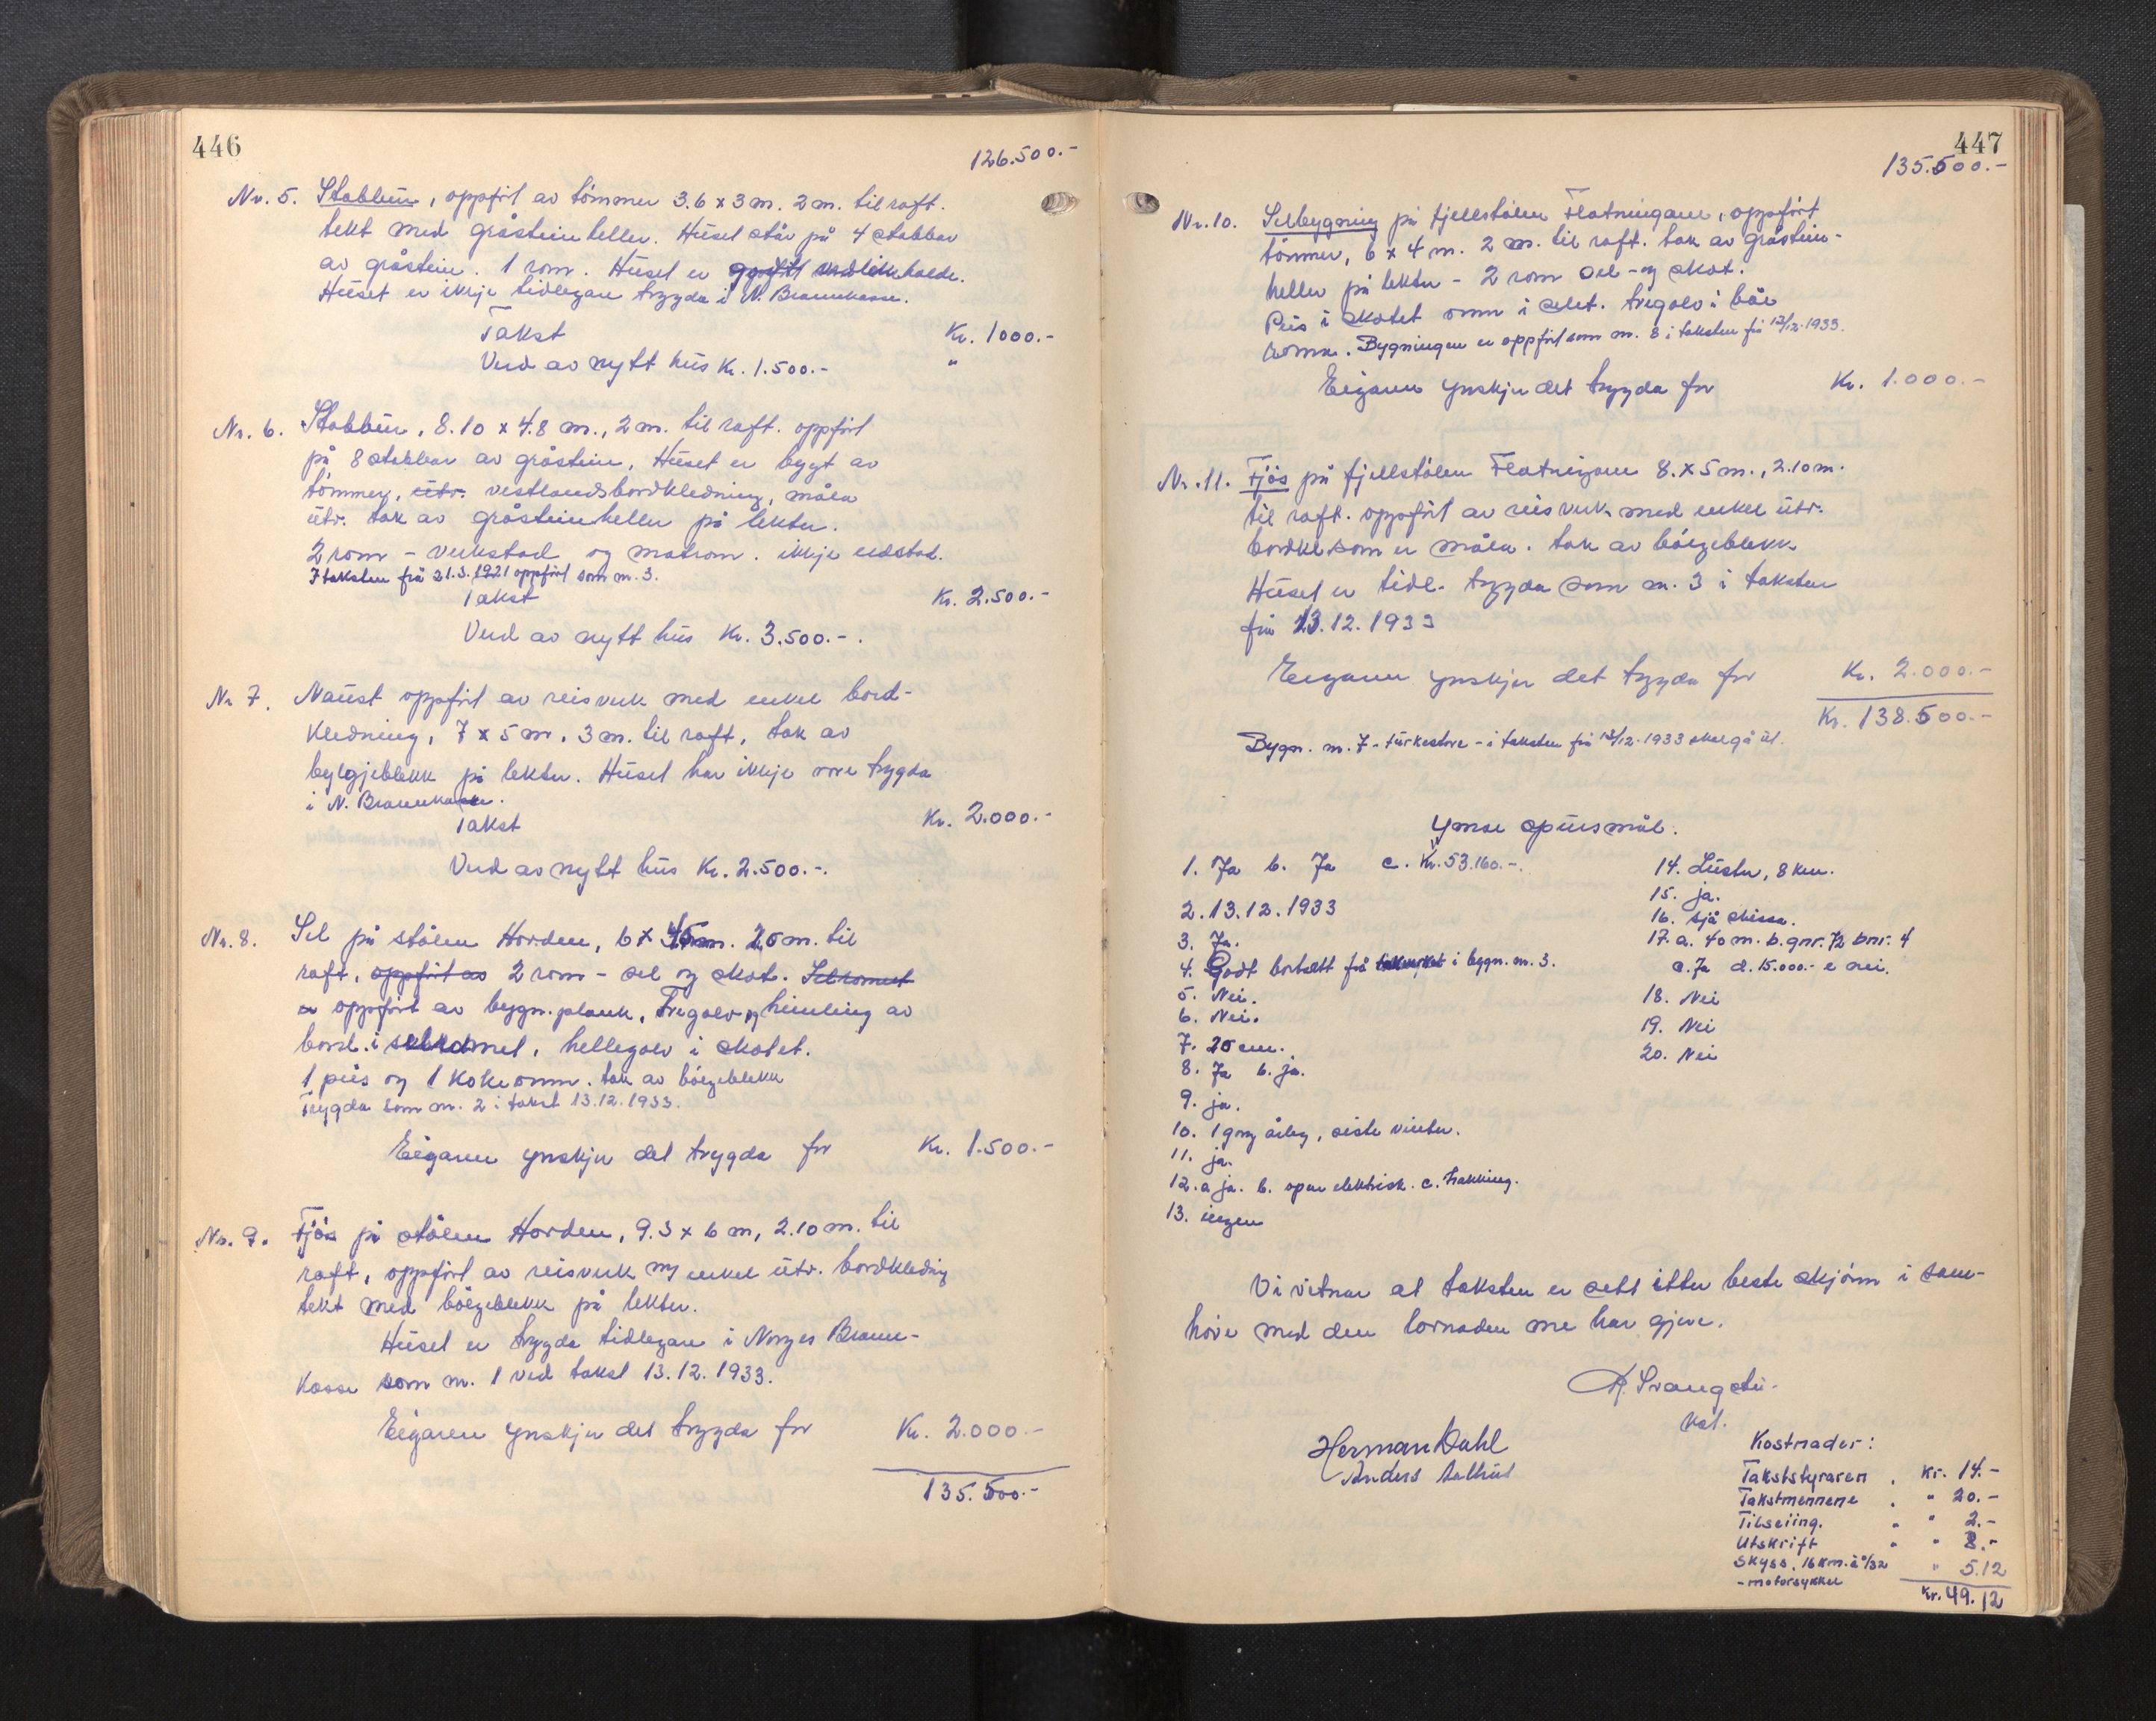 446
126.500.-
Nr. 5. Stabbur, oppført av tømmer 3.6 x 3 m. 2 m. til raft.
tekt med gråsteinheller. Huset står på 4 stabbar
av gråstein. 1 rom. Huset er godt vedlikehalde.
Huset er ikkje tidlegare trygda i N. Brannkasse.
Takst Kr. 1000.-
Verd av nytt hus Kr. 1.500.- "
Nr. 6. Stabbur, 8.10 x 4.8 m., 2 m. til raft. oppført
på 8 stabbar av gråstein, Huset er bygt av
tømmer, utv. vestlandsbordkledning, måla
utv. tak av gråsteinheller på lekter.
2 rom - verkstad og matrom. ikkje eldstad.
I taksten frå 21.3.1921 oppført som nr. 3.
Takst Kr. 2.500.-
Verd av nytt hus Kr. 3.500.-.
Nr 7. Naust oppført av reisverk med enkel bord-
kledning, 7 x 5 m. 3 m. til raft, tak av
bylgjeblekk på lekter. Huset har ikkje vore trygda
i N. Brannkasse.
Takst Kr. 2.000.-
Verd av nytt hus Kr. 2.500.-.
Nr. 8. Sel på stølen Horden, 6 x m. m. til
raft, oppført av 2 rom - sel og skot. Selromet
er oppført av bygn.plank, Tregolv og himling av
bord i selromet, hellegolv i skotet.
1 peis og 1 kokeomn. tak av bølgeblekk
Trygda som nr. 2 i takst 13.12.1933.
Eigaren ynskjer det trygda for Kr. 1.500.-
Nr. 9. Fjøs på stølen Horden, 9.3 x 6 m, 2.10 m. til
raft, oppført av reisverk og enkel utv. bordkledning
tekt med bølgeblekk på lekter.
Huset er trygda tidlegare i Norges Brann-
kasse som nr. 1 ved takst 13.12.1933.
Eigaren ynskjer det trygda for Kr. 2.000.-
135.500.-
447
135.500.-
Nr. 10. Selbygning på fjellstølen Flatningane, oppført
tømmer, 6 x 4 m. 2 m. til raft. tak av gråstein-
heller på lekter - 2 rom sel- og skot.
Peis i skotet omn i selet. tregolv i båe
roma. Bygningen er oppført som nr. 8 i taksten frå 13/12.1933.
Eigaren ynskjer det trygda for Kr. 1.000.-
Nr. 11. Fjøs på fjellstølen Flatningane 8. x 5 m., 2.10 m.
til raft. oppført av reisverk med enkel utv.
bordkl. som er måla. tak av bølgeblekk
Huset er tidl. trygda som nr. 3 i taksten
frå 13.12.1933
Eigaren ynskjer det trygda for Kr. 2.000.-
Kr. 138.500.-
Bygn. nr. 7 - turkestove - i taksten frå 13/12.1933 skal gå ut.
Ymse spursmål.
1. Ja b. Ja c. Kr. 53.160.-.
2. 13.12.1933
3. Ja.
4. Godt bortsett frå i bygn. nr. 3.
5. Nei.
6. Nei.
7. 20 cm.
8. Ja b. ja.
9. ja.
10. 1 gong årleg, siste vinter.
11. ja.
12. a ja. b. open elektrisk. c. trekking.
13. ingen
14. Luster, 8 km.
15. ja.
16. sjå skissa.
17. a. 40 m. b. gnr. 72 bnr. 4
c. Ja d. 15.000.- e nei.
18. Nei
19. Nei
20. Nei
Vi vitnar at taksten er sett etter beste skjønn i sam-
høve med den lovnaden me har gjeve.
Herman Dahl
Anders
Kostnader:
Takststyraren . Kr. 14.-
Takstmennene . " 20.-
Tilseiing. " " 2.-
Utskrift " " 8.-
Skyss. 16 km. à 0/32 " 5.12
- motorsykkel
Kr. 49.12